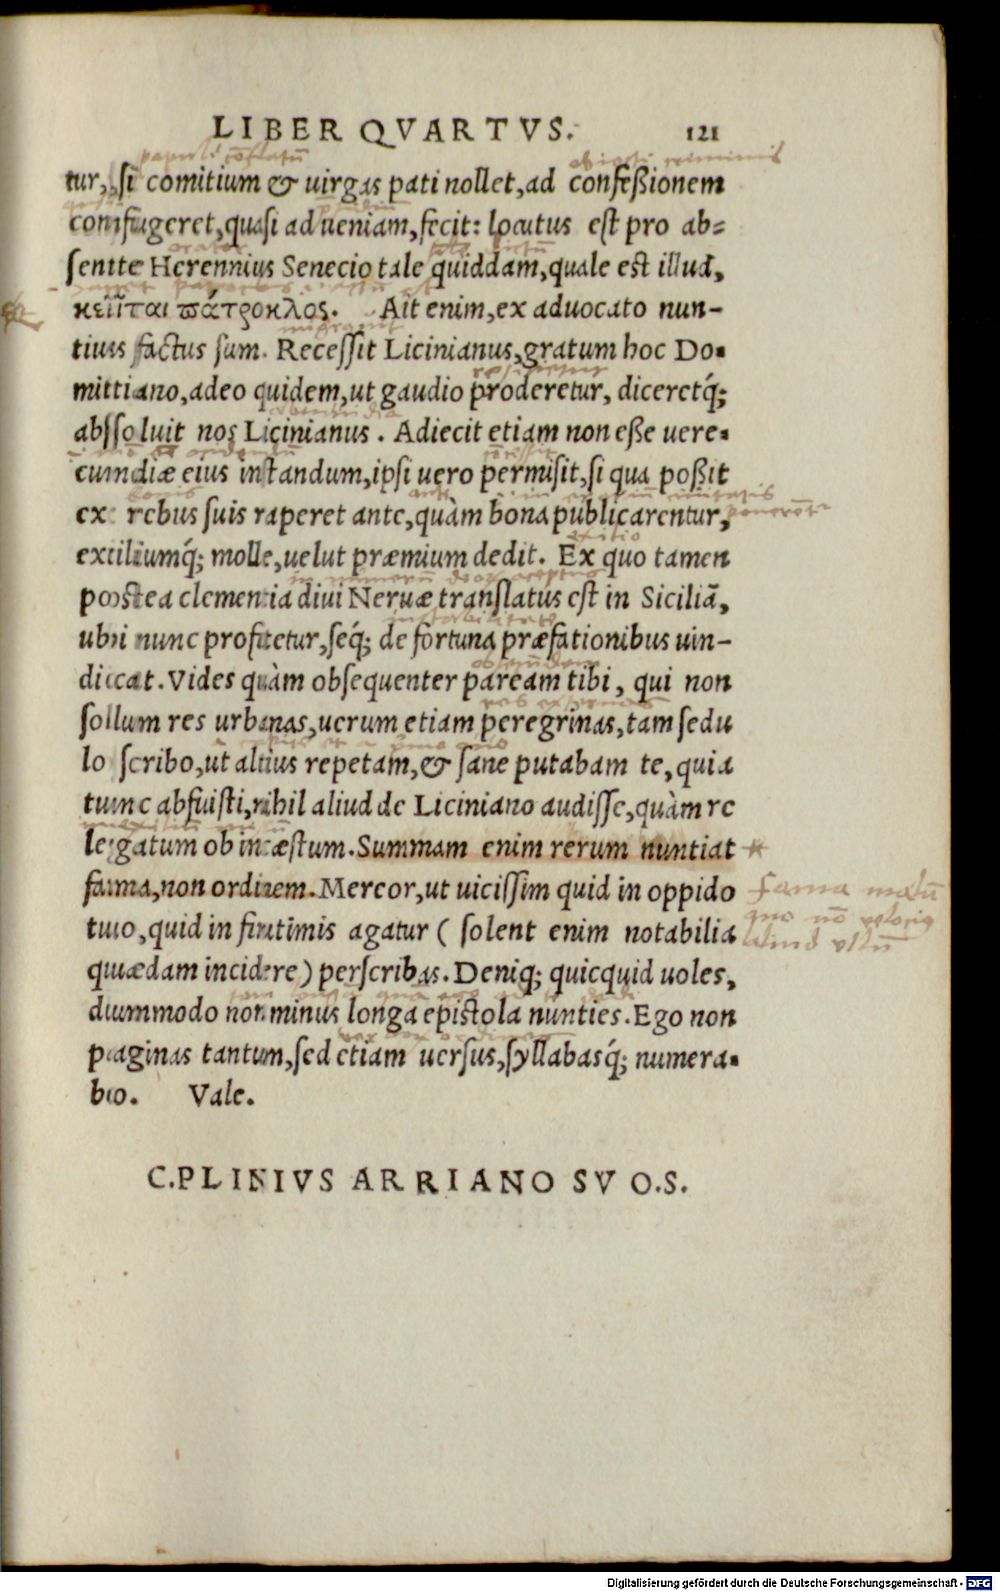 LIBER QVARTVS. 121
tur, si comitium & uirgas pati nollet, ad confeßionem
confugeret, quasi ad ueniam, fecit: locutus est pro ab=
sente Herennius Senecio tale quiddam, quale est illud,
κεῖται πάτροκλος. Ait enim, ex aduocato nun-
tius factus sum. Recessit Licinianus, gratum hoc Do-
mitiano, adeo quidem, ut gaudio proderetur, diceretq́;
absoluit nos Licinianus. Adiecit etiam non eße uere-
cundiæ eius instandum, ipsi uero permisit, si qua poßit
ex rebus suis raperet ante, quàm bona publicarentur,
exiliumq́; molle, uelut præmium dedit. Ex quo tamen
postea clementia diui Neruæ translatus est in Siciliã,
ubi nunc profitetur, seq́; de fortuna præfationibus uin-
dicat. Vides quàm obsequenter paream tibi, qui non
solum res urbanas, uerum etiam peregrinas, tam sedu
lo scribo, ut altius repetam, & sane putabam te, quia
tunc abfuisti, nihil aliud de Liciniano audisse, quàm re
legatum ob incæstum. Summam enim rerum nuntiat
fama, non ordinem. Mereor, ut uicissim quid in oppido
fama malũ
tuo, quid in finitimis agatur ( solent enim notabilia
quo nõ velocius
aliud ullũ
quædam incidere ) perscribas. Deniq; quicquid uoles,
dummodo non minus longa epistola nunties. Ego non
paginas tantum, sed etiam uersus, syllabasq́; numera-
bo. Vale.
C. PLINIVS ARRIANO SVO. S.
Digitalisierung gefördert durch die Deutsche Forschungsgemeinschaft - DFG